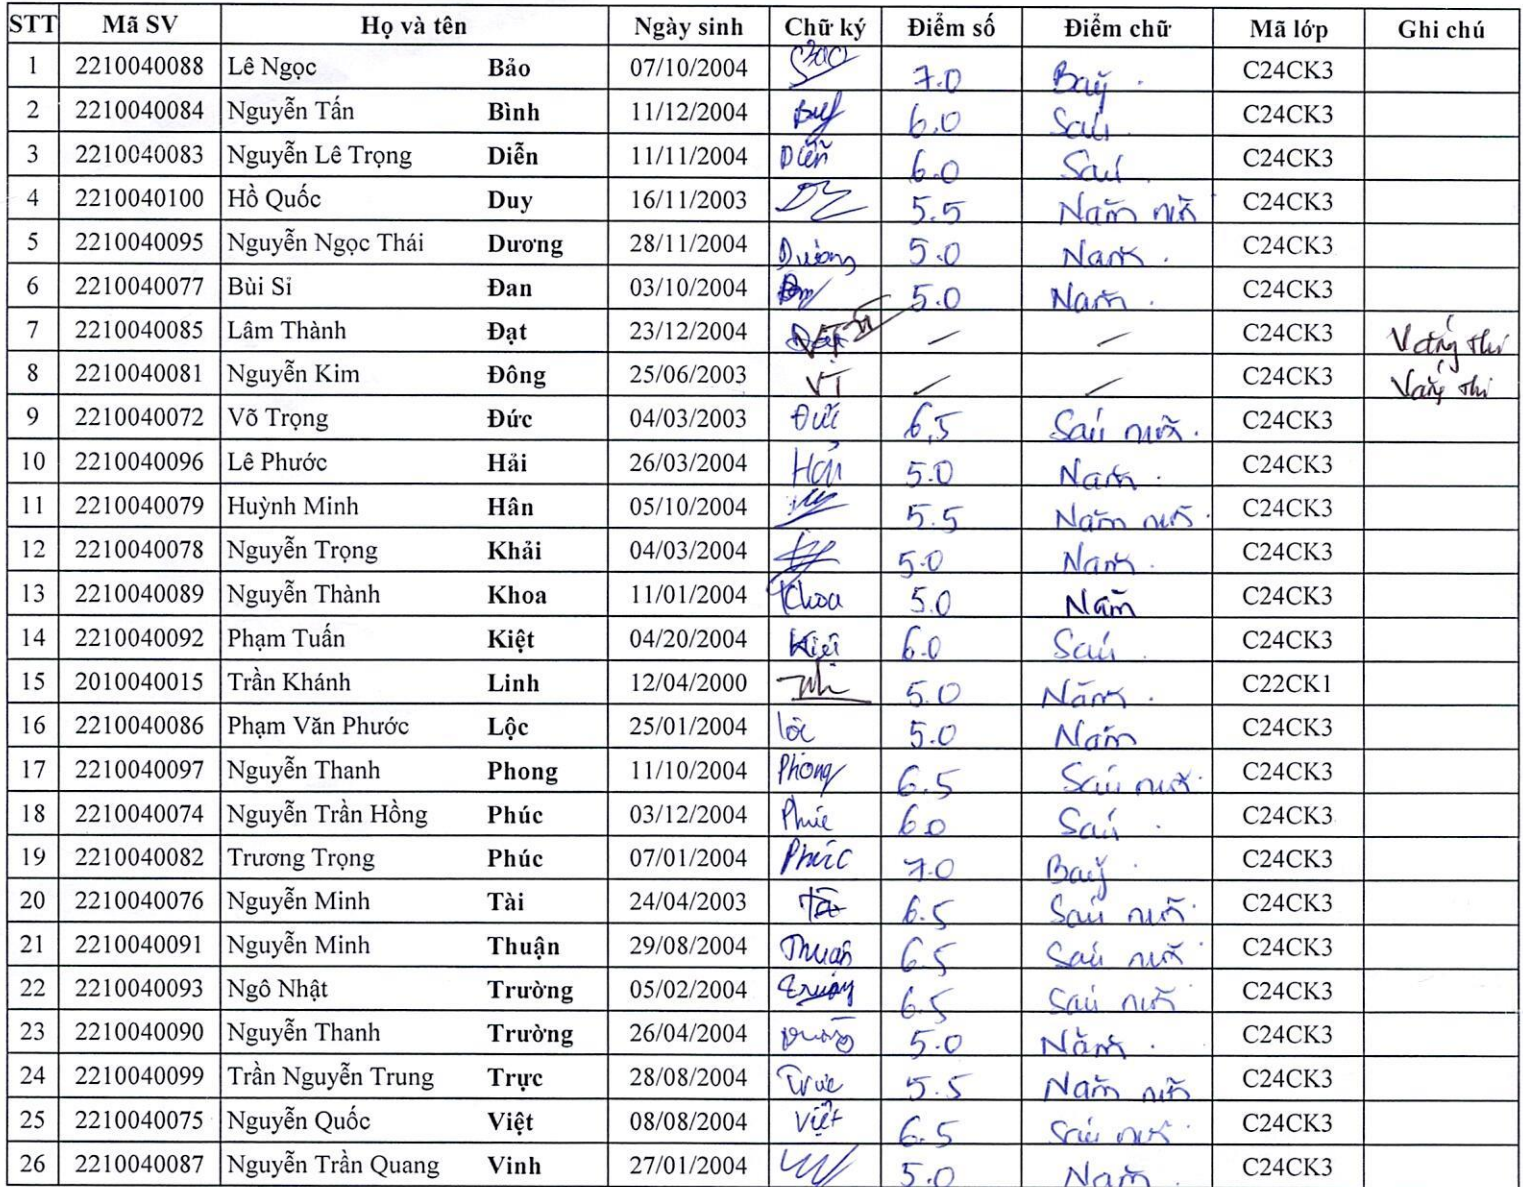 STT Mã SV Họ và tên Ngày sinh Chữ ký Điểm số Điểm chữ Mã lớp Ghi chú
1 2210040088 Lê Ngọc Bảo 07/10/2004 7.0 Bảy. C24CK3
2 2210040084 Nguyễn Tấn Bình 11/12/2004 6.0 Sáu. C24CK3
3 2210040083 Nguyễn Lê Trọng Diễn 11/11/2004 Diễn 6.0 Sáu. C24CK3
4 2210040100 Hồ Quốc Duy 16/11/2003 5.5 Năm rưỡi C24CK3
5 2210040095 Nguyễn Ngọc Thái Dương 28/11/2004 Dương 5.0 Năm. C24CK3
6 2210040077 Bùi Sỉ Đan 03/10/2004 5.0 Năm. C24CK3
7 2210040085 Lâm Thành Đạt 23/12/2004 VT — — C24CK3 Vắng thi
8 2210040081 Nguyễn Kim Đông 25/06/2003 VT — — C24CK3 Vắng thi
9 2210040072 Võ Trọng Đức 04/03/2003 Đức 6,5 Sáu rưỡi. C24CK3
10 2210040096 Lê Phước Hải 26/03/2004 Hải 5.0 Năm. C24CK3
11 2210040079 Huỳnh Minh Hân 05/10/2004 5.5 Năm rưỡi. C24CK3
12 2210040078 Nguyễn Trọng Khải 04/03/2004 5.0 Năm. C24CK3
13 2210040089 Nguyễn Thành Khoa 11/01/2004 Khoa 5.0 Năm C24CK3
14 2210040092 Phạm Tuấn Kiệt 04/20/2004 Kiệt 6.0 Sáu. C24CK3
15 2010040015 Trần Khánh Linh 12/04/2000 5.0 Năm. C22CK1
16 2210040086 Phạm Văn Phước Lộc 25/01/2004 lộc 5.0 Năm C24CK3
17 2210040097 Nguyễn Thanh Phong 11/10/2004 Phong 6.5 Sáu rưỡi. C24CK3
18 2210040074 Nguyễn Trần Hồng Phúc 03/12/2004 Phúc 6.0 Sáu. C24CK3
19 2210040082 Trương Trọng Phúc 07/01/2004 Phúc 7.0 Bảy. C24CK3
20 2210040076 Nguyễn Minh Tài 24/04/2003 Tài 6.5 Sáu rưỡi. C24CK3
21 2210040091 Nguyễn Minh Thuận 29/08/2004 Thuận 6.5 Sáu rưỡi. C24CK3
22 2210040093 Ngô Nhật Trường 05/02/2004 Trường 6.5 Sáu rưỡi. C24CK3
23 2210040090 Nguyễn Thanh Trường 26/04/2004 5.0 Năm. C24CK3
24 2210040099 Trần Nguyễn Trung Trực 28/08/2004 Trực 5.5 Năm rưỡi C24CK3
25 2210040075 Nguyễn Quốc Việt 08/08/2004 Việt 6.5 Sáu rưỡi. C24CK3
26 2210040087 Nguyễn Trần Quang Vinh 27/01/2004 5.0 Năm. C24CK3